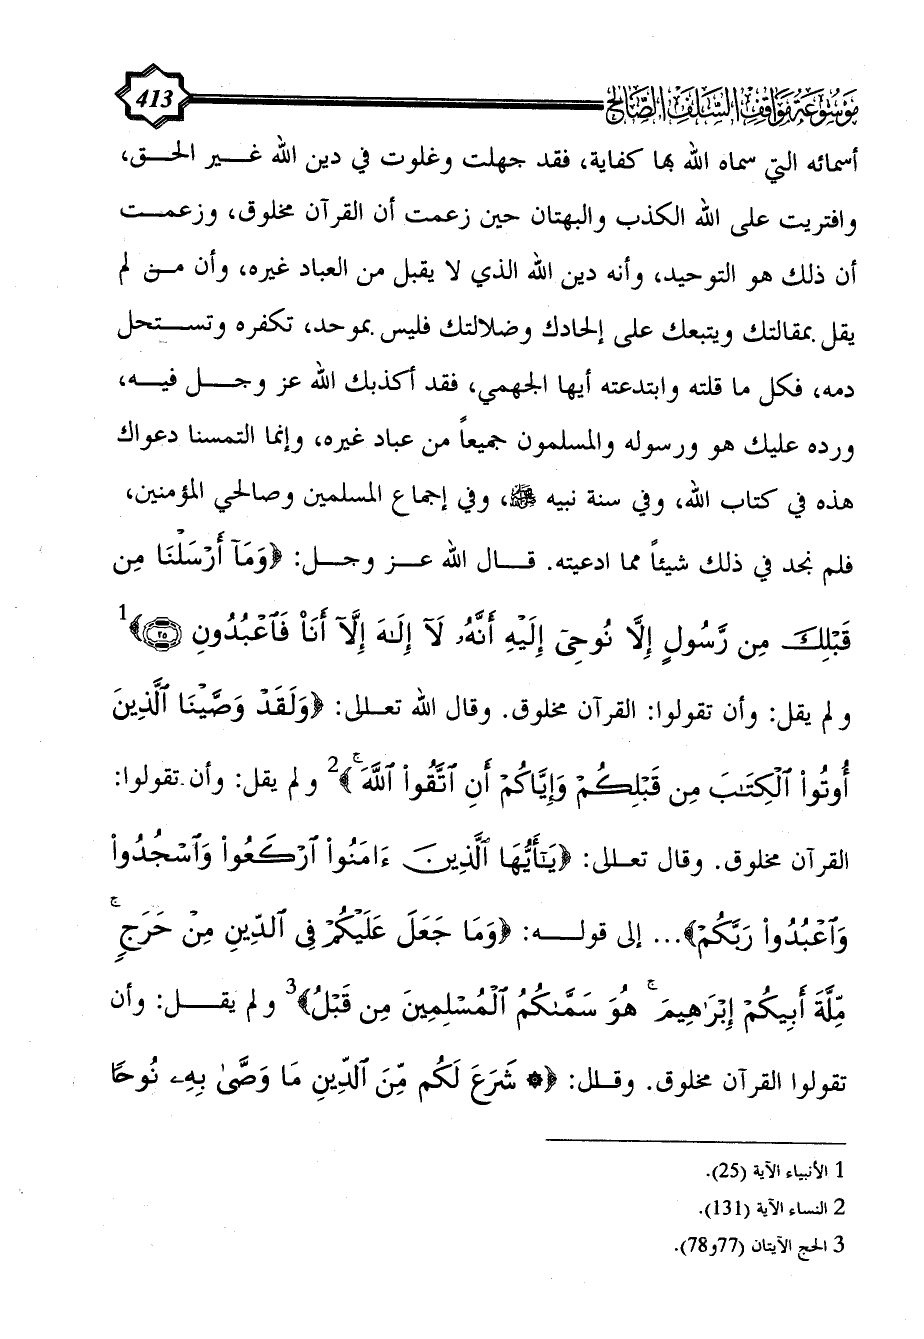 موسوعة مواقف السلف الصالح
413
أسمائه التي سماه الله بها كفاية، فقد جهلت وغلوت في دين الله غير الحق،
وافتريت على الله الكذب والبهتان حين زعمت أن القرآن مخلوق، وزعمت
أن ذلك هو التوحيد، وأنه دين الله الذي لا يقبل من العباد غيره، وأن من لم
يقل بمقالتك ويتبعك على إلحادك وضلالتك فليس بموحد، تكفره وتستحل
دمه، فكل ما قلته وابتدعته أيها الجهمي، فقد أكذبك الله عز وجل فيه،
ورده عليك هو ورسوله والمسلمون جميعاً من عباد غيره، وإنما التمسنا دعواك
هذه في كتاب الله، وفي سنة نبيه ﷺ، وفي إجماع المسلمين وصالحي المؤمنين،
فلم نجد في ذلك شيئاً مما ادعيته. قال الله عز وجل: ﴿وَمَآ أَرْسَلْنَا مِن
قَبْلِكَ مِن رَّسُولٍ إِلَّا نُوحِىٓ إِلَيْهِ أَنَّهُۥ لَآ إِلَٰهَ إِلَّآ أَنَا۠ فَٱعْبُدُونِ ۝٢٥﴾1
ولم يقل: وأن تقولوا: القرآن مخلوق. وقال الله تعالى: ﴿وَلَقَدْ وَصَّيْنَا ٱلَّذِينَ
أُوتُوا۟ ٱلْكِتَٰبَ مِن قَبْلِكُمْ وَإِيَّاكُمْ أَنِ ٱتَّقُوا۟ ٱللَّهَ ۚ﴾2 ولم يقل: وأن تقولوا:
القرآن مخلوق. وقال تعالى: ﴿يَٰٓأَيُّهَا ٱلَّذِينَ ءَامَنُوا۟ ٱرْكَعُوا۟ وَٱسْجُدُوا۟
وَٱعْبُدُوا۟ رَبَّكُمْ﴾... إلى قوله: ﴿وَمَا جَعَلَ عَلَيْكُمْ فِى ٱلدِّينِ مِنْ حَرَجٍ ۚ
مِّلَّةَ أَبِيكُمْ إِبْرَٰهِيمَ ۚ هُوَ سَمَّىٰكُمُ ٱلْمُسْلِمِينَ مِن قَبْلُ﴾3 ولم يقل: وأن
تقولوا القرآن مخلوق. وقال: ﴿۞ شَرَعَ لَكُم مِّنَ ٱلدِّينِ مَا وَصَّىٰ بِهِۦ نُوحًا
1 الأنبياء الآية (25).
2 النساء الآية (131).
3 الحج الآيتان (77و78).